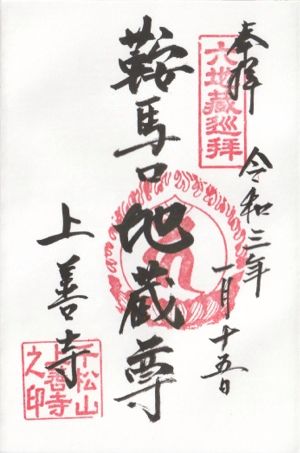 奉拝
六地蔵巡拝
令和三年
一月十五日
鞍馬口地蔵尊
上善寺
千松山
上善寺
之印